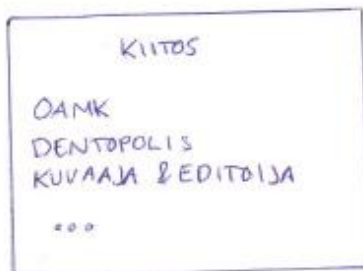 KIITOS
OAMK
DENTOPOLIS
KUVAAJA & EDITOIJA
...